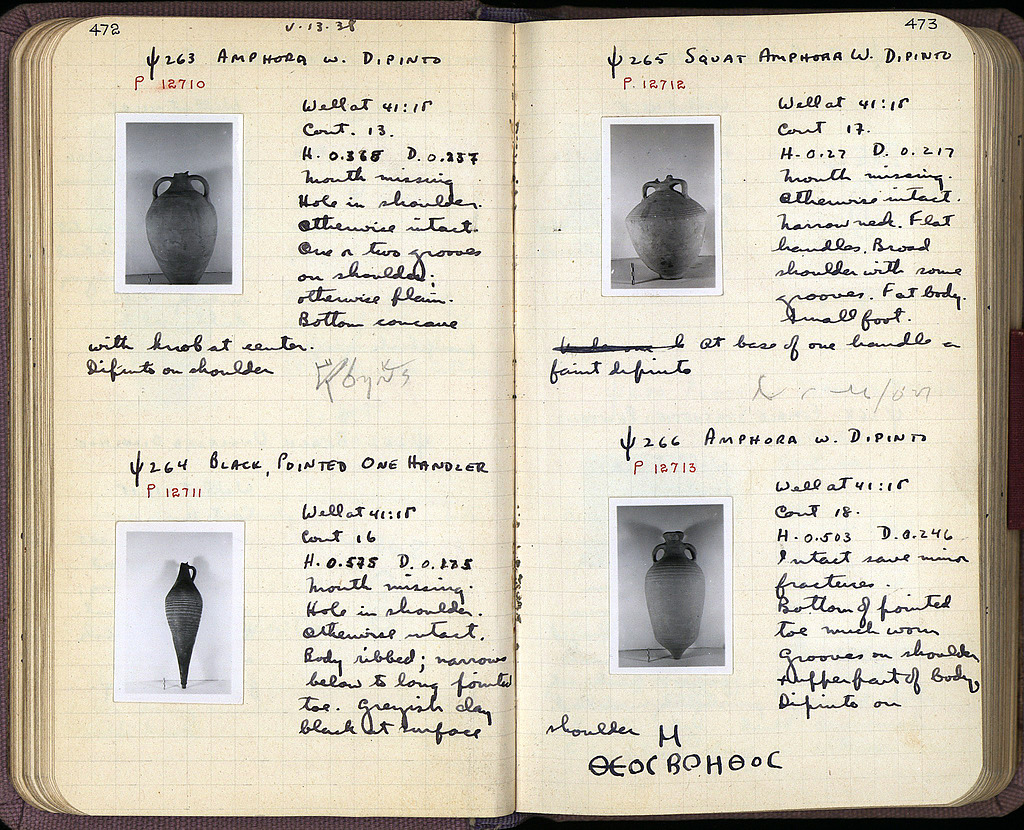 472
V·13·38
ψ263 AMPHORA W. DIPINTO
P 12710
Well at 41:15
Cont. 13.
Mouth missing
Hole in shoulder.
Otherwise intact.
One or two grooves
on shoulder;
otherwise plain.
Bottom concave
with knob at center.
Dipinto on shoulder
ψ264 BLACK, POINTED ONE HANDLER
P 12711
Well at 41:15
Cont 16
H. 0.575
Mouth missing.
Hole in shoulder.
Otherwise intact.
Body ribbed; narrows
below to long pointed
toe. Greyish clay
black at surface
473
ψ265 SQUAT AMPHORA W. DIPINTO
P. 12712
Well at 41:15
Cont 17.
H. 0.27 D. 0.217
Mouth missing.
Otherwise intact.
Narrow neck. Flat
handles. Broad
shoulder with some
grooves. Fat body.
Small foot.
At base of one handle a
faint dipinto
ψ266 AMPHORA W. DIPINTO
P 12713
Well at 41:15
Cont 18.
H. 0.503 D. 0.246
Intact save minor
fractures.
Bottom of pointed
toe much worn
Grooves on shoulder
+ upper part of body,
Dipinto on
shoulder
ΘΕΟC ΒΟΗΘΟC